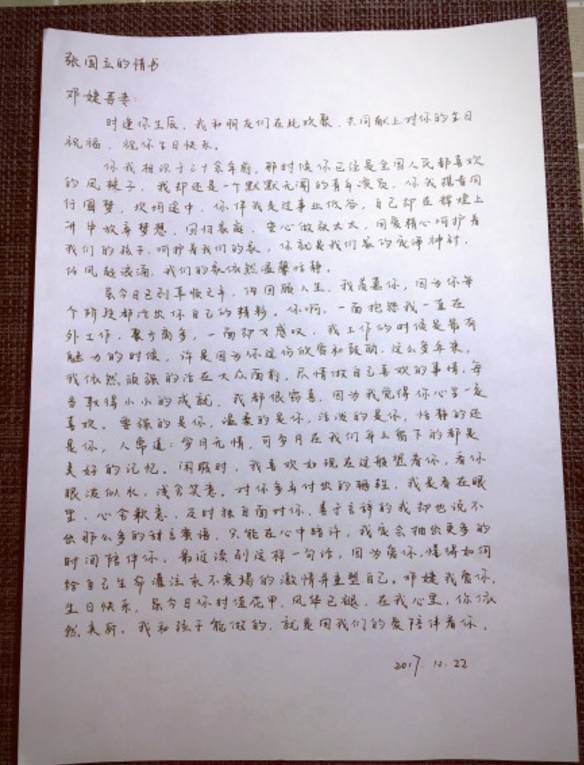 张国立的情书
邓婕吾妻：
时逢你生辰，我和朋友们在此欢聚，共同献上对你的生日
祝福，祝你生日快乐。
你我相识于三十余年前，那时候你已经是全国人民都喜欢
的凤辣子，我却还是一个默默无闻的青年演员，你我携手同
行圆梦，坎坷途中，你伴我走过事业低谷，自己却在辉煌上
升中放弃梦想，回归家庭，安心做我太太，用爱精心呵护着
我们的孩子，呵护着我们的家，你就是我们家的定海神针，
任风起浪涌，我们的家依然温馨恬静。
虽今日已到耳顺之年，但回顾人生，我羡慕你，因为你每
个阶段都活出你自己的精彩。你啊，一面抱怨我一直在
外工作，聚少离多，一面却又感叹，我工作的时候是最有
魅力的时候，许是因为你这份欣赏和鼓励，这么多年来，
我依然顽强的活在大众面前，尽情做自己喜欢的事情，每
当取得小小的成就，我都很窃喜，因为我觉得你心里一定
喜欢。要强的是你，温柔的是你，活泼的是你，恬静的还
是你，人常道：岁月无情，可岁月在我们身上留下的都是
美好的记忆。闲暇时，我喜欢如现在这般望着你，看你
眼波似水，浅含笑意。对你多年付出的牺牲，我是看在眼
里，心含歉意，及时独自面对你，善于言辞的我却也说不
出那么多的甜言蜜语，只能在心中暗许，我定会抽出更多的
时间陪伴你。最近读到这样一句话，因为爱你，懂得如何
给自己生命灌注永不衰竭的激情并重塑自己。邓婕我爱你，
生日快乐，虽今日你时值花甲，风华已褪，在我心里，你依
然美丽。我和孩子能做的，就是用我们的爱陪伴着你。
2017.12.22